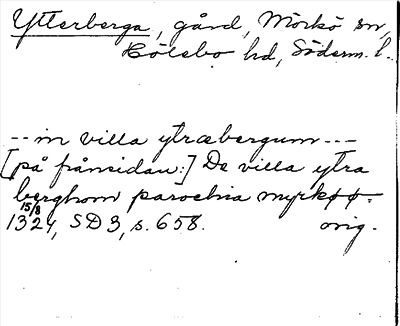 Ytterberga, gård, Mörkö sn,
Hölebo hd, Söderm. l.
-- in villa ytræbergum ---
[på frånsidan:] De villa ytra
berghom parochia myrkøø.
15/8 1324, SD3, s. 658. orig.